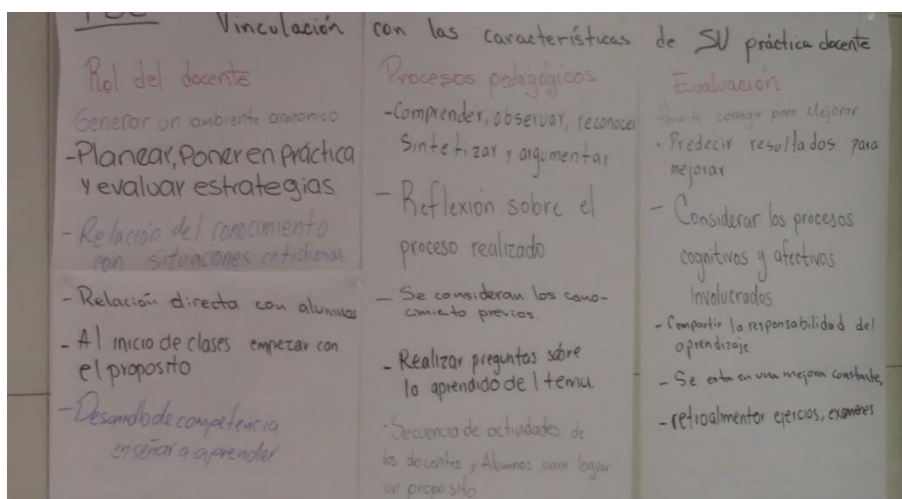 Vinculación con las características de SU práctica docente
Rol del docente
Generar un ambiente armonico
-Planear, Poner en Práctica
y evaluar estrategias
- Relación del conocimiento
con situaciones cotidianas
- Relación directa con alumnos
- Al inicio de clases empezar con
el proposito
- Desarrollo de competencia
enseñar a aprender
Procesos pedagógicos
-Comprender, observar, reconocer
Sintetizar y argumentar
- Reflexión sobre el
proceso realizado
- Se consideran los cono-
cimiento previos.
- Realizar preguntas sobre
lo aprendido del tema.
-Secuencia de actividades de
los docentes y Alumnos para lograr
un proposito
Evaluación
corregir para Mejorar
· Predecir resultados para
mejorar
- Considerar los procesos
cognitivos y afectivos
involucrados
- Compartir la responsabilidad del
aprendizaje
- Se esta en una mejora constante,
- retroalimentar ejercios, exámenes